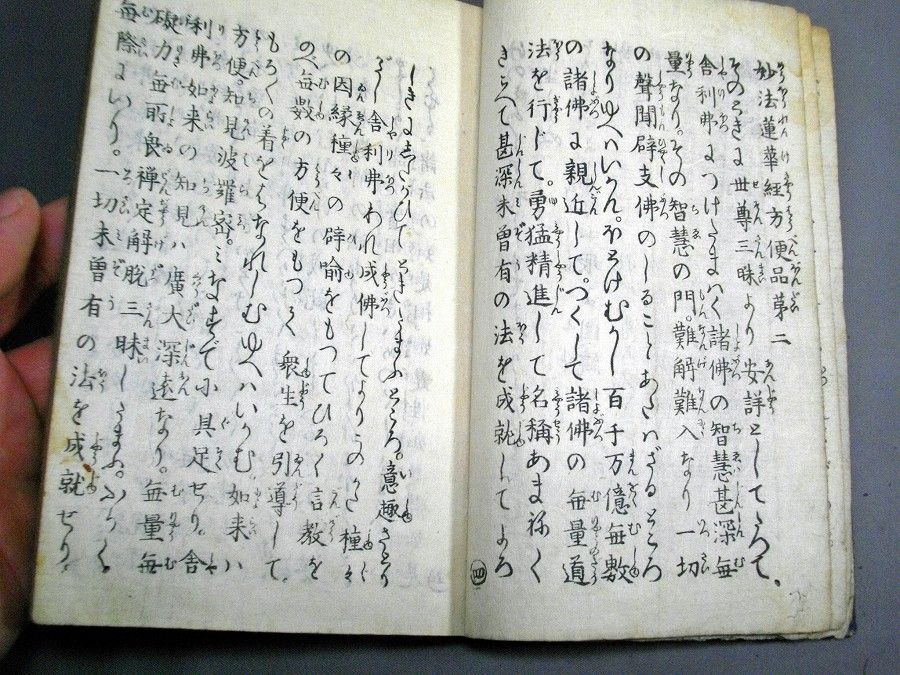 妙法蓮華經方便品第二
そのときに世尊三昧より安詳としてたちて。
舎利弗につげたまはく諸佛の智慧甚深無
量なり。その智慧の門。難解難入なり一切
の聲聞辟支佛のしることあたはざるところ
なりゆへいかん。ほとけむかし百千万億無數
の諸佛に親近して。つくして諸佛の無量道
法を行じて。勇猛精進して名稱あまねく
きこへて甚深未曽有の法を成就してよろ
四
しきにしたがひてときたまふところ。意趣さとり
がたし舎利弗われ成佛してよりこのかた種々
の因縁種々の辟喻をもつてひろく言教を
のべ無数の方便をもつて衆生を引導して
もろ〱の着をはなれしむゆへいかむ如来ハ
方便。知見波羅密。ミなすでに具足せり。舎
利弗如来の知見ハ廣大深遠なり。無量無
礙力無所畏禅定解脱三昧したまふ。ふかく
無際にいり。一切未曽有の法を成就せり。